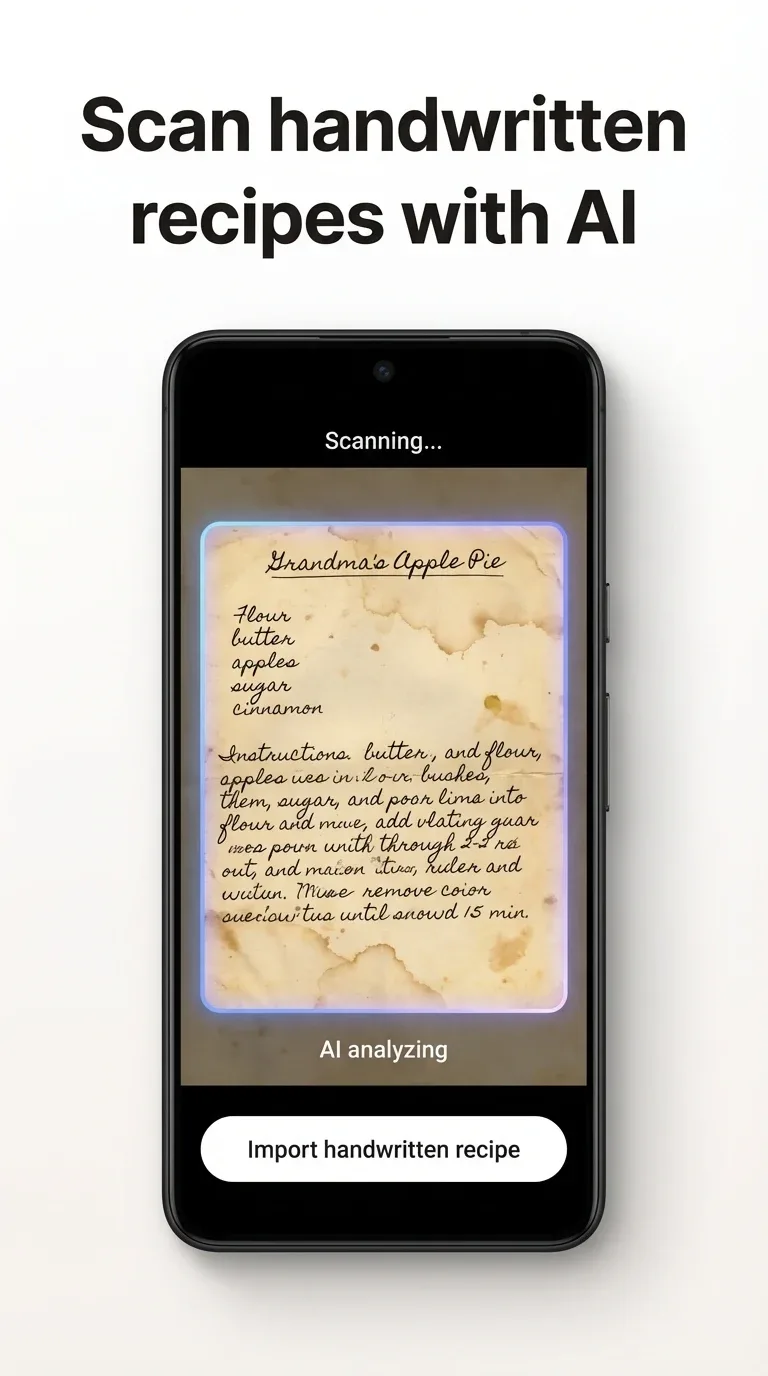 Scan handwritten
recipes with AI
Scanning...
Grandma's Apple Pie
Flour
butter
apples
sugar
cinnamon
Instructions. butter, and flour,
apples bushes,
them, sugar, and poor lims into
flour and add vlating guar
with through 2-2
out, and ruler and
remove
until snowd 15 min.
AI analyzing
Import handwritten recipe